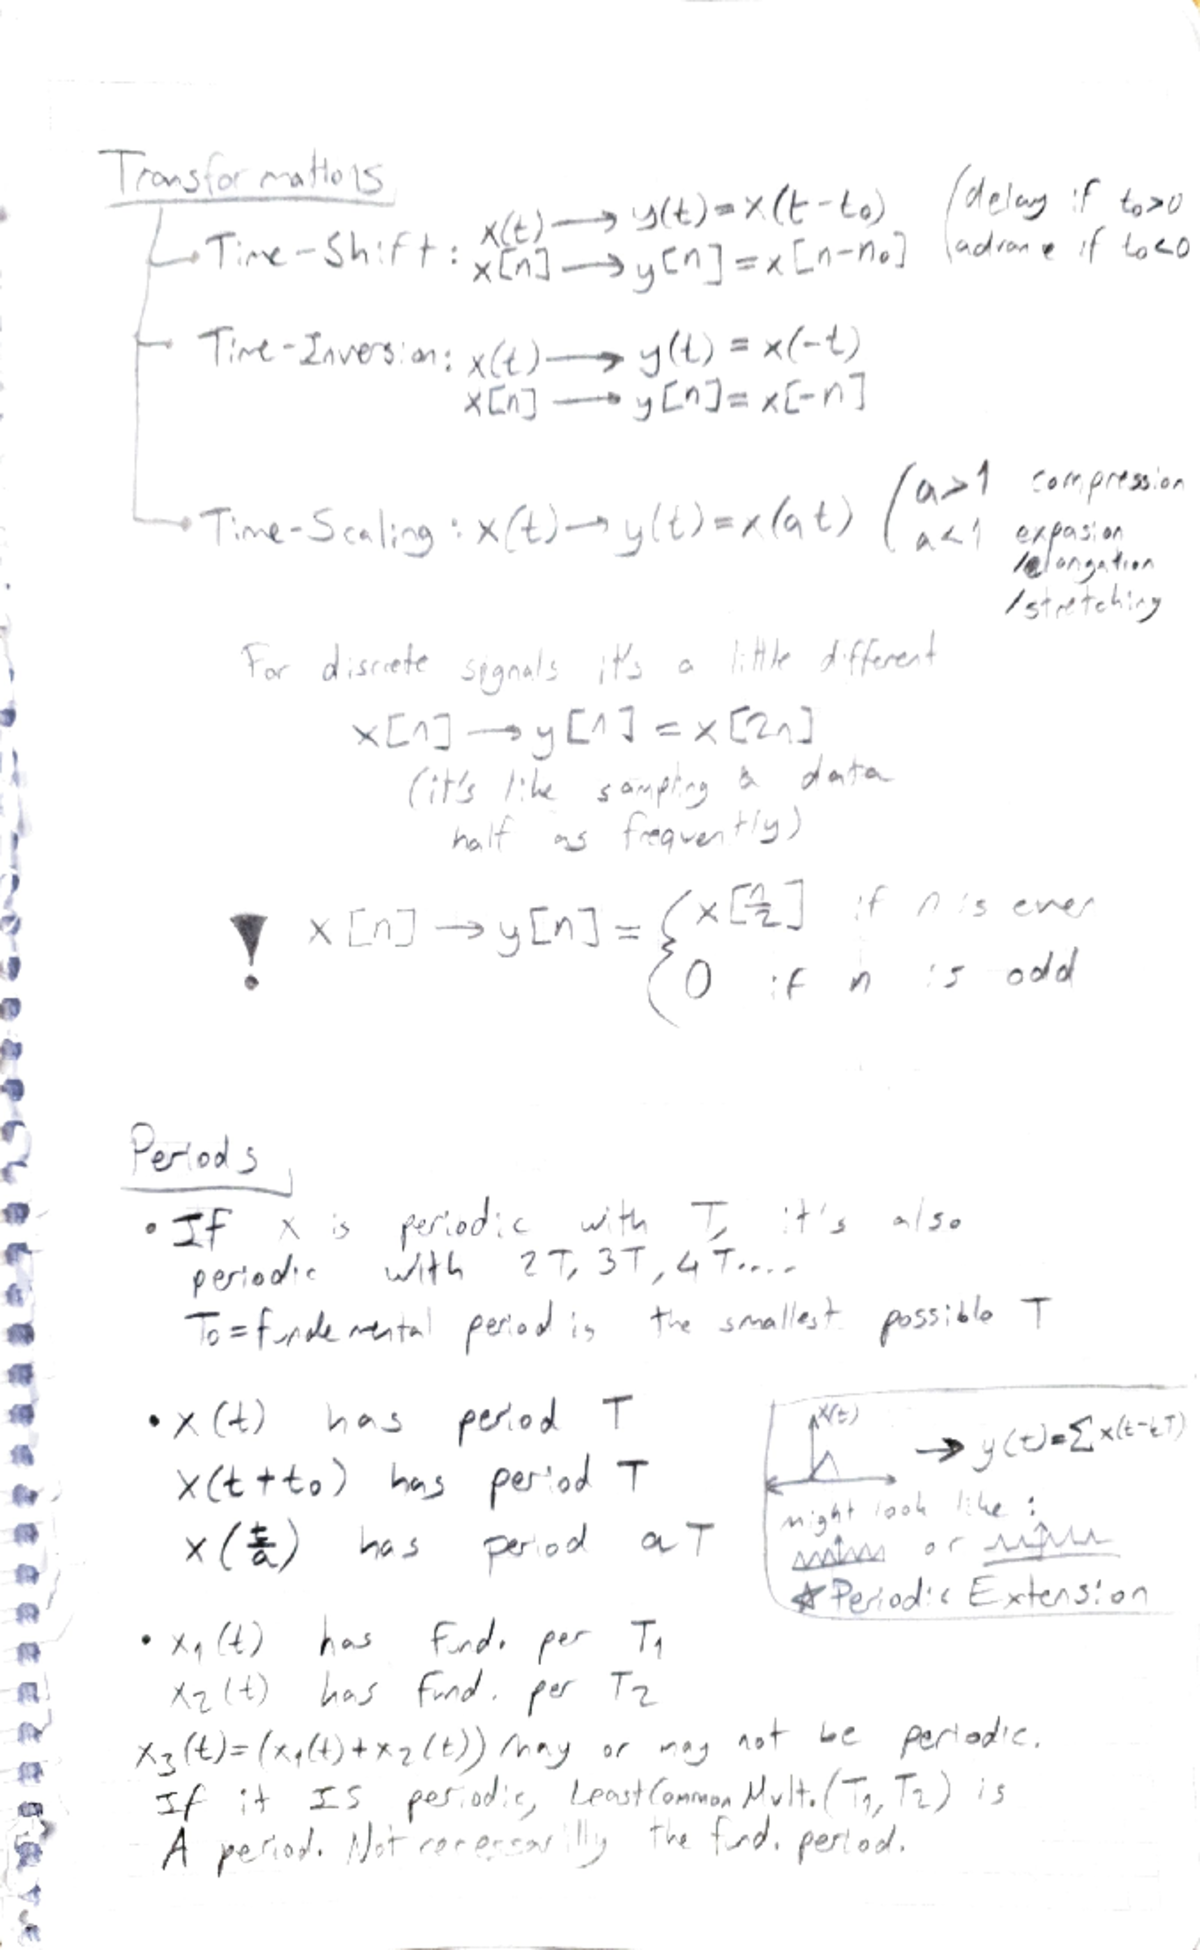 Transformations
Time-Shift: x(t) → y(t) = x(t-t₀) (delay if t₀>0
x[n] → y[n] = x[n-n₀] advance if t₀<0
Time-Inversion: x(t) → y(t) = x(-t)
x[n] → y[n] = x[-n]
Time-Scaling: x(t) → y(t) = x(at) (a>1 compression
a<1 expasion
/elongation
/stretching
For discrete signals it's a little different
x[n] → y[n] = x[2n]
(it's like sampling a data
half as frequently)
! x[n] → y[n] = { x[n/2] if n is even
0 if n is odd
Periods
• If x is periodic with T, it's also
periodic with 2T, 3T, 4T....
T₀ = fundemental period is the smallest possible T
• x(t) has period T
x(t+t₀) has period T
x(t/a) has period aT
x(t) → y(t)=∑x(t-kT)
might look like:
or
☆Periodic Extension
• x₁(t) has fund. per T₁
x₂(t) has fund. per T₂
x₃(t)=(x₁(t)+x₂(t)) may or may not be periodic.
If it IS periodic, LeastCommonMult.(T₁,T₂) is
A period. Not necessarilly the fund. period.